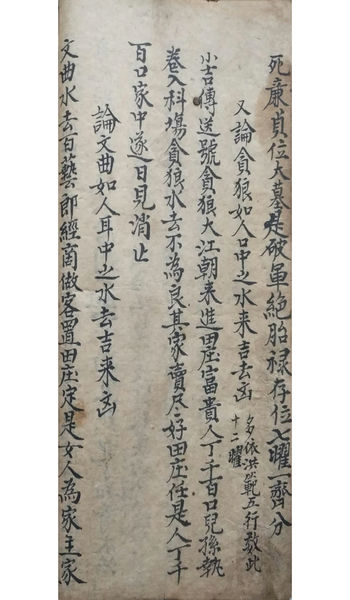 死廉貞位大墓是破軍絶胎禄存位七曜一齊分
又論貪狼如人口中之水来吉去凶
多依洪範五行数此
十二曜
小吉傳送號貪狼大江朝来進田庄富貴人丁千百口兒孫執
卷入科場貪狼水去不為良其家賣尽好田庄任是人丁千
百口家中逐日見消止
論文曲如人耳中之水去吉来凶
文曲水去百藝郎經商做客置田庄定是女人為家主家